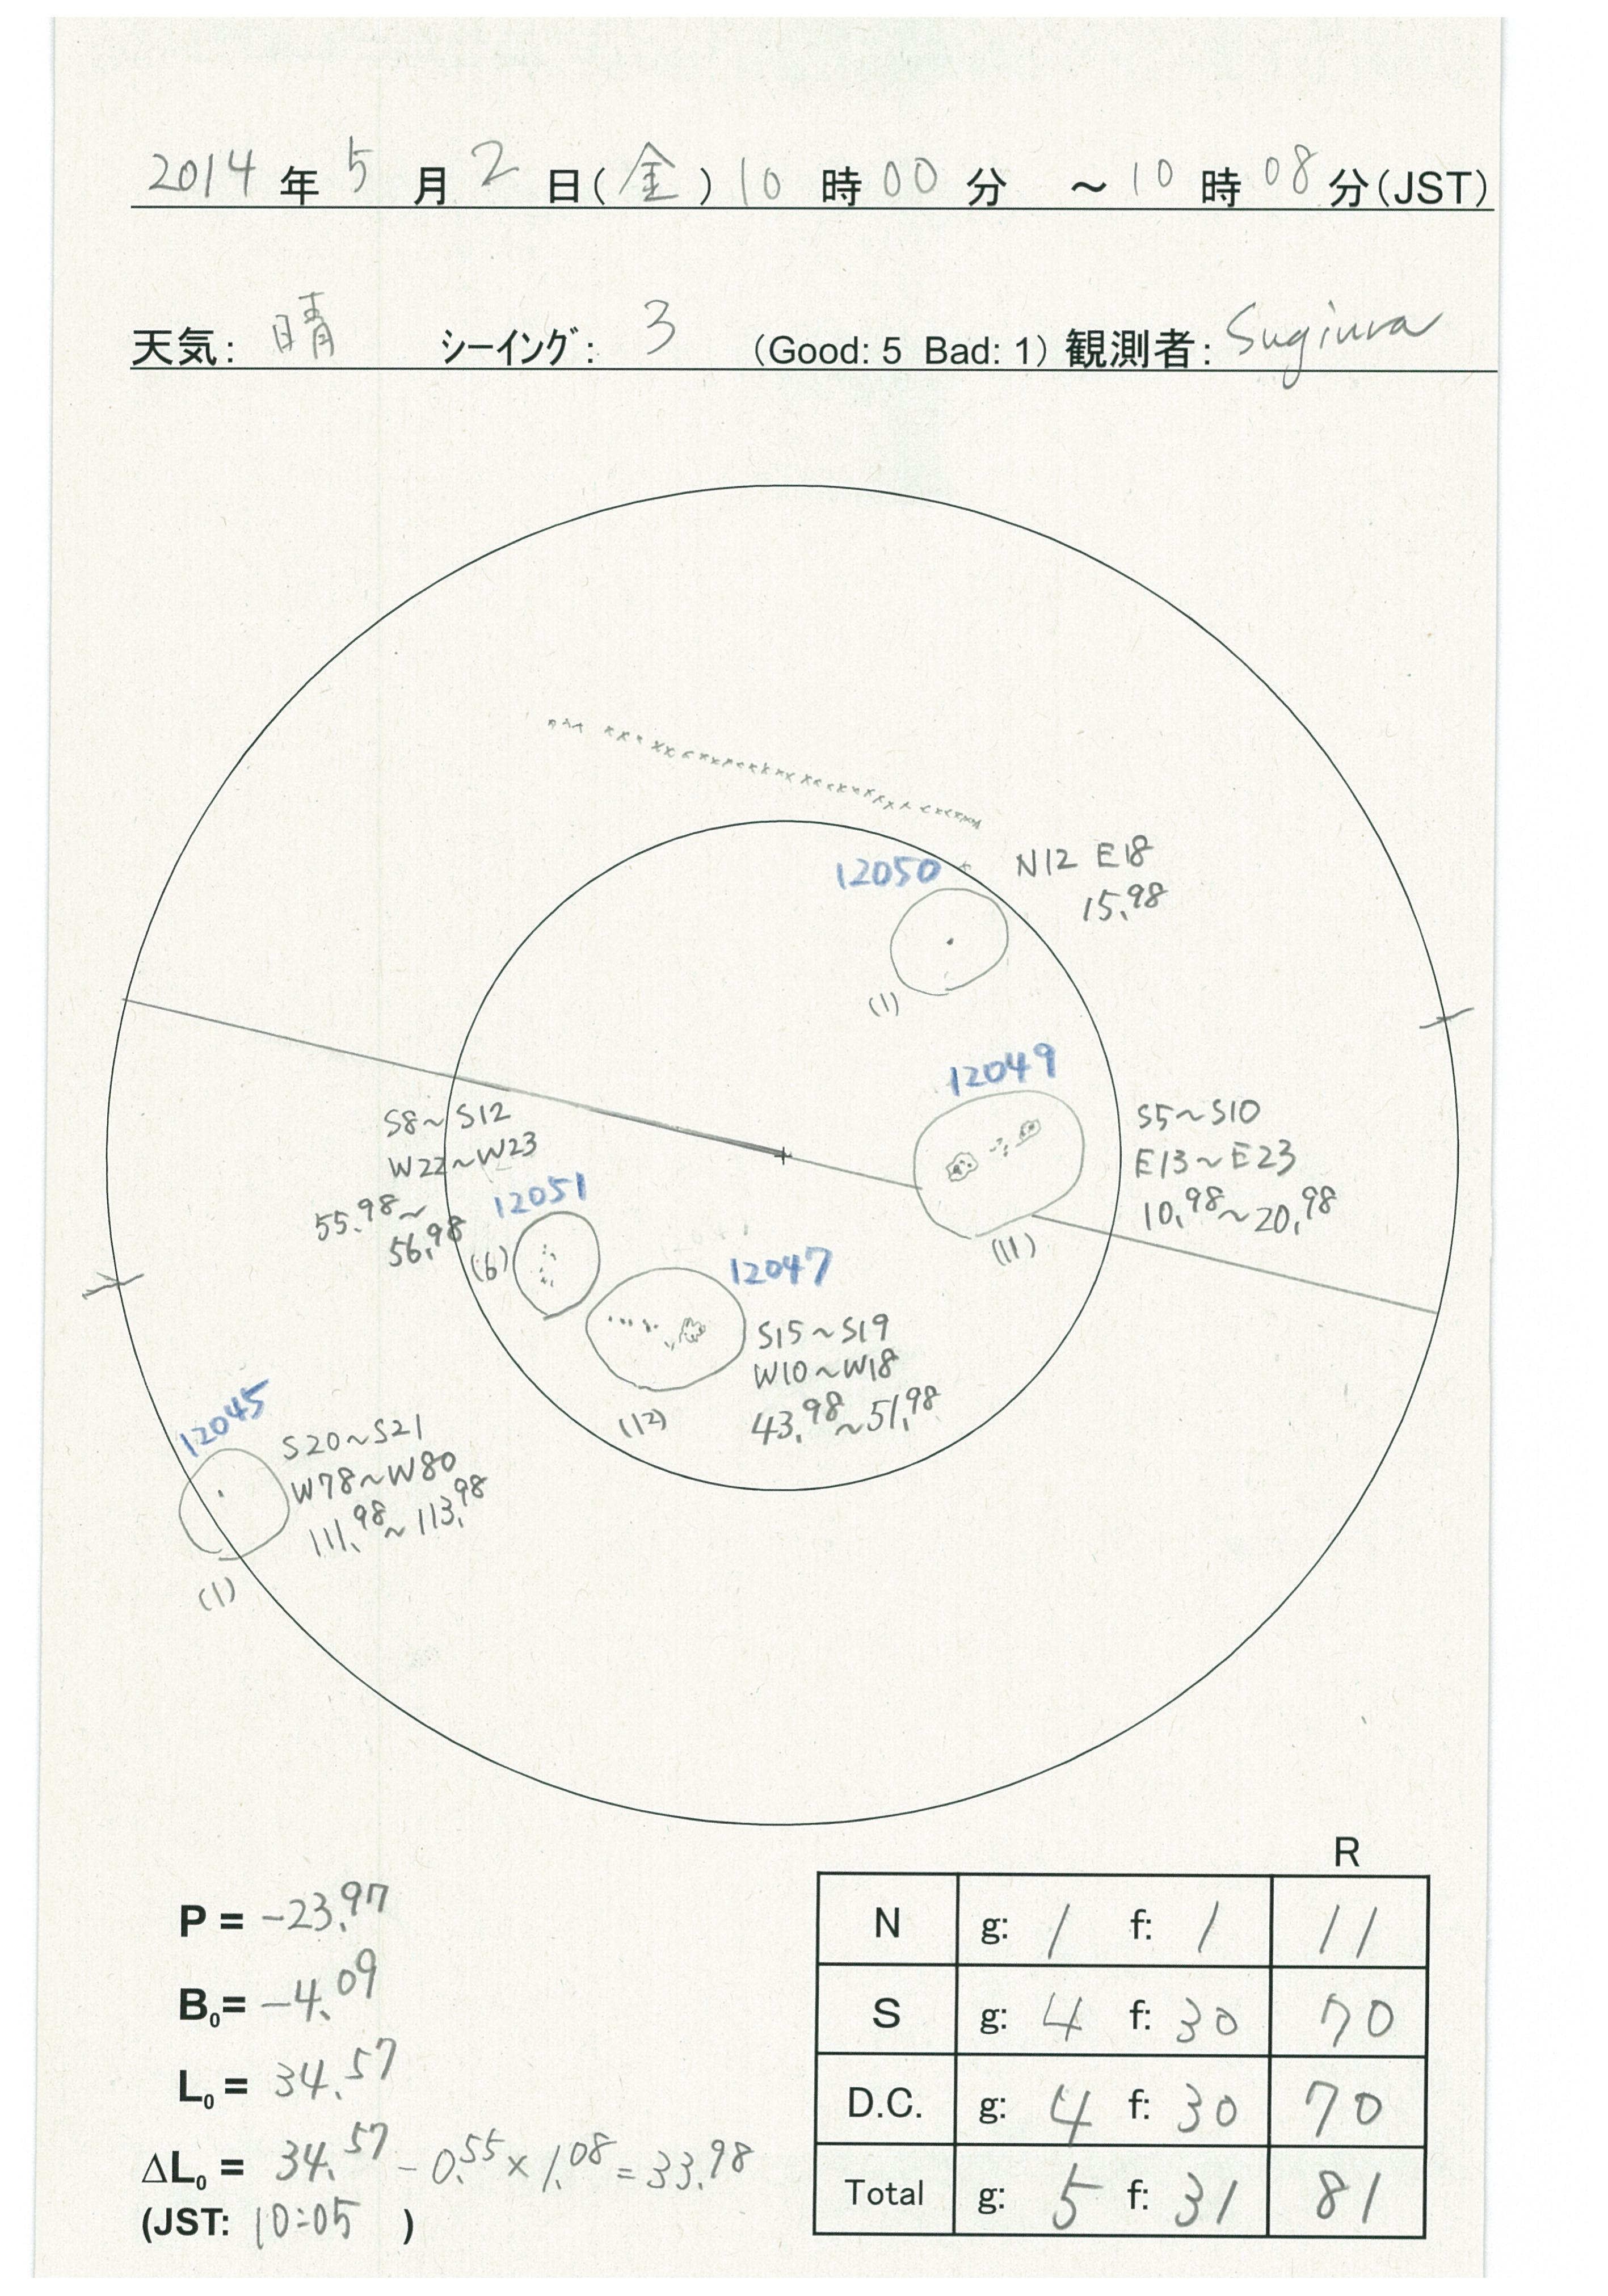 2014 年 5 月 2 日(金) 10 時 00 分 ～ 10 時 08 分(JST)
天気: 晴 シーイング: 3 (Good: 5 Bad: 1) 観測者: Sugiura
12050
N12 E18
15.98
(1)
12049
S5~S10
E13~E23
10.98~20.98
(11)
S8~S12
W22~W23
55.98~
56.98
12051
(6)
12047
S15~S19
W10~W18
43.98~51.98
(12)
12045
S20~S21
W78~W80
111.98~113.98
(1)
P = -23.97
B0= -4.09
L0 = 34.57
ΔL0 = 34.57 - 0.55 × 1.08 = 33.98
(JST: 10:05 )
R
N g: 1 f: 1 11
S g: 4 f: 30 70
D.C. g: 4 f: 30 70
Total g: 5 f: 31 81